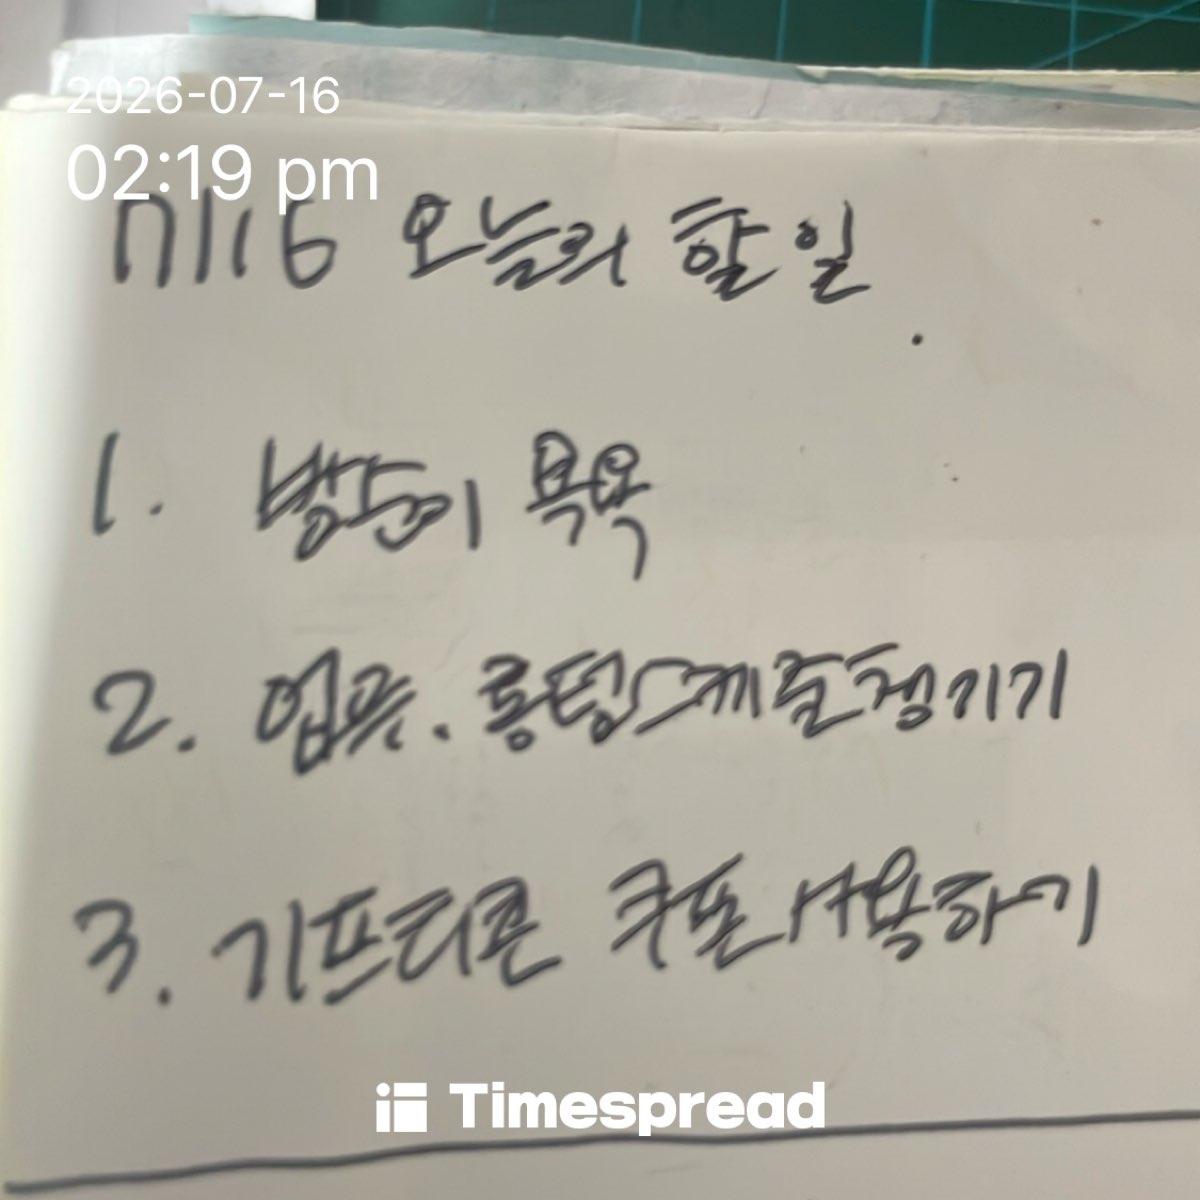 2026-07-16
02:19 pm
7/16 오늘의 할일.
1. 목욕
2. 챙기기
3. 기프티콘 쿠폰 사용하기
Timespread